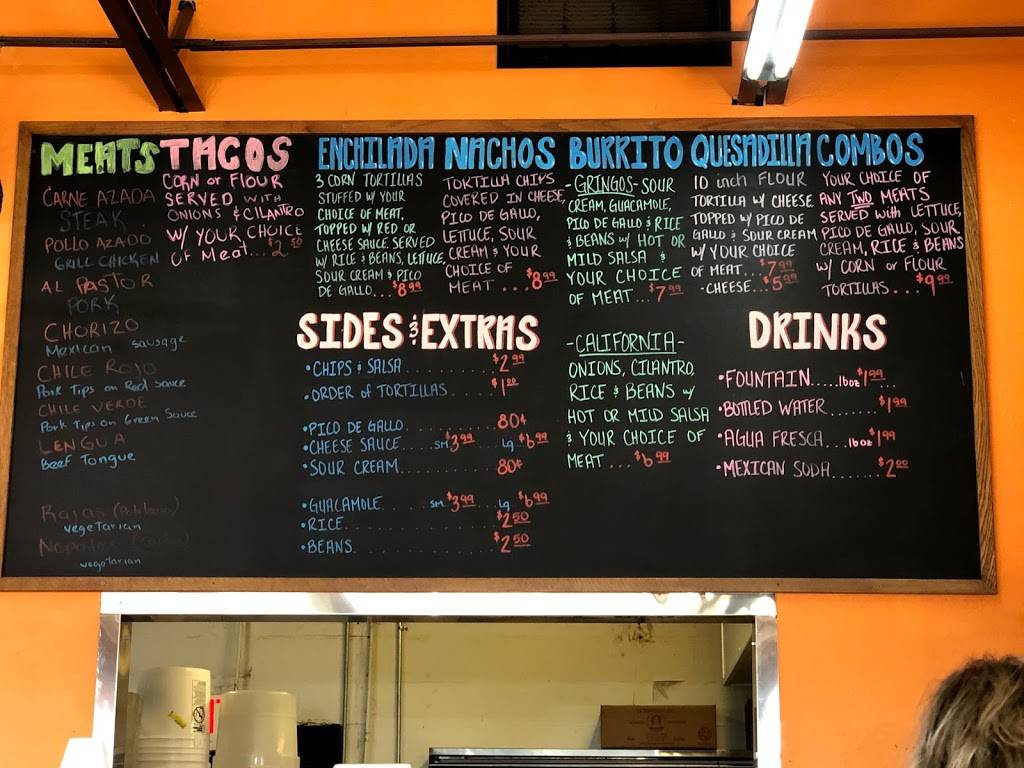 MEATS
CARNE AZADA
STEAK
POLLO AZADO
GRILL CHICKEN
AL PASTOR
PORK
CHORIZO
Mexican sausage
CHILE ROJO
Pork Tips on Red Sauce
CHILE VERDE
Pork Tips on Green Sauce
LENGUA
Beef Tongue
Rajas
vegetarian
vegetarian
TACOS
CORN or FLOUR
SERVED WITH
ONIONS & CILANTRO
W/ YOUR CHOICE
OF Meat... $2.50
ENCHILADA
3 CORN TORTILLAS
STUFFED W/ YOUR
CHOICE OF MEAT,
TOPPED W/ RED OR
CHEESE SAUCE. SERVED
W/ RICE & BEANS, LETTUCE,
SOUR CREAM & PICO
DE GALLO...$8.99
NACHOS
TORTILLA CHIPS
COVERED IN CHEESE,
PICO DE GALLO,
LETTUCE, SOUR
CREAM & YOUR
CHOICE OF
MEAT ....$8.99
BURRITO
-GRINGOS- SOUR
CREAM, GUACAMOLE,
PICO DE GALLO & RICE
& BEANS W/ HOT OR
MILD SALSA &
YOUR CHOICE
OF MEAT...$7.99
-CALIFORNIA-
ONIONS, CILANTRO,
RICE & BEANS w/
HOT OR MILD SALSA
& YOUR CHOICE OF
MEAT ...$6.99
QUESADILLA
10 inch FLOUR
TORTILLA W/ CHEESE
TOPPED W/ PICO DE
GALLO & SOUR CREAM
W/ YOUR CHOICE
OF MEAT...$7.99
-CHEESE...$5.99
COMBOS
YOUR CHOICE OF
ANY TWO MEATS
SERVED with LETTUCE,
PICO DE GALLO, SOUR
CREAM, RICE & BEANS
W/ CORN or FLOUR
TORTILLAS...$9.99
SIDES & EXTRAS
•CHIPS & SALSA..........$2.99
•ORDER of TORTILLAS.....$1.00
•PICO DE GALLO..........80¢
•CHEESE SAUCE....sm $3.99...lg $6.99
•SOUR CREAM.............80¢
•GUACAMOLE....sm $3.99...lg $6.99
•RICE...................$2.50
•BEANS..................$2.50
DRINKS
•FOUNTAIN.....16oz $1.99
•BOTTLED WATER.......$1.99
•AGUA FRESCA...16oz $1.99
•MEXICAN SODA.......$2.00